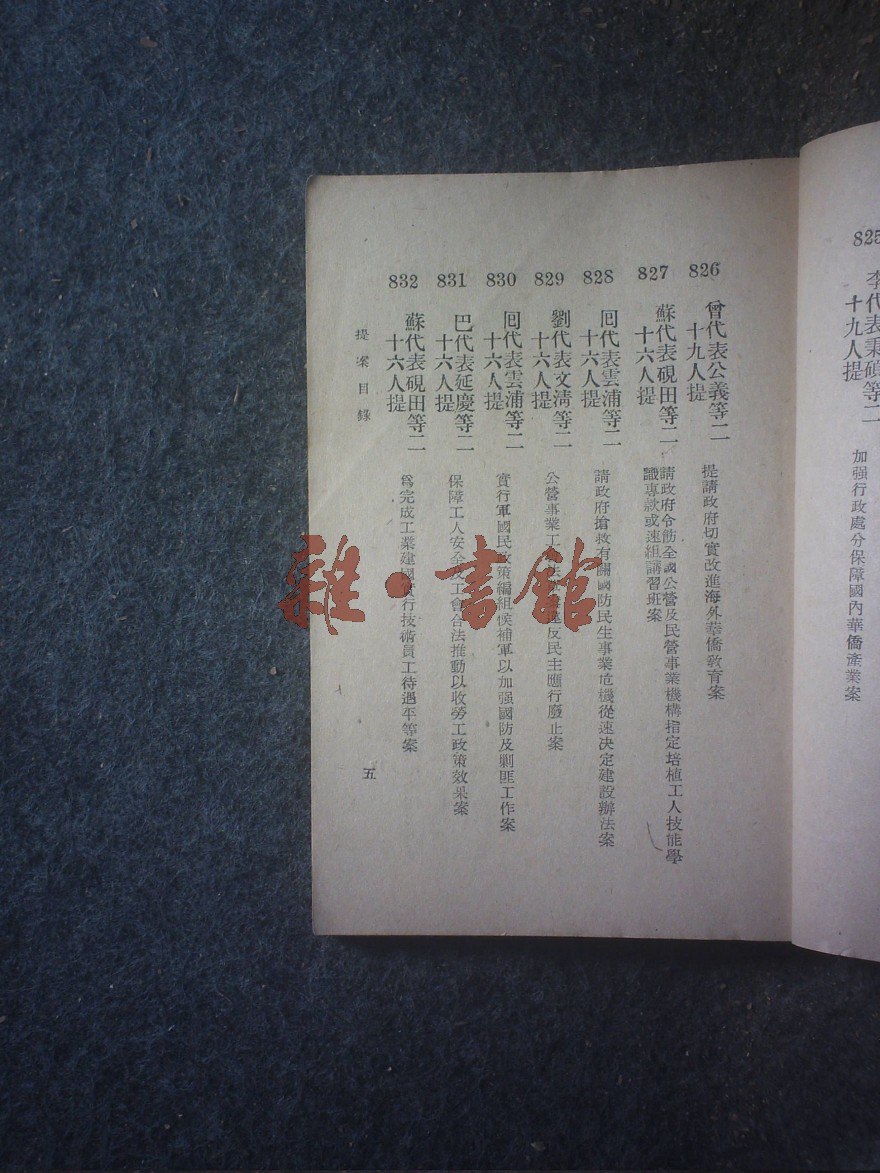 825
李代表秉碩等二
十九人提
加强行政處分保障國內華僑產業案
826
曾代表公義等二
十九人提
提請政府切實改進海外華僑敎育案
827
蘇代表硯田等二
十六人提
請政府令飭全國公營及民營事業機構指定培植工人技能學
識專款或速組講習班案
828
回代表雲浦等二
十六人提
請政府搶救有關國防民生事業危機從速決定建設辦法案
829
劉代表文淸等二
十六人提
公營事業工 違反民主應行廢止案
830
回代表雲浦等二
十六人提
實行軍國民政策編組候補軍以加强國防及剿匪工作案
831
巴代表延慶等二
十六人提
保障工人安全及工會合法推動以收勞工政策效果案
832
蘇代表硯田等二
十六人提
爲完成工業建國實行技術員工待遇平等案
提案目錄
五
雜·書館